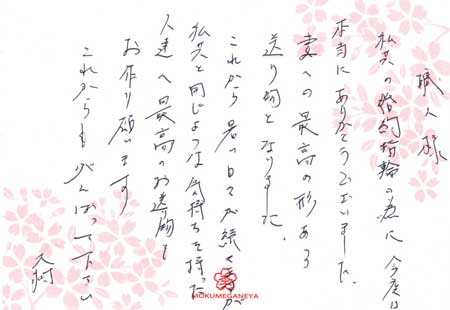 職人様
私共の婚約指輪の為に今度は
本当にありがとうございました。
妻への最高の形ある
送り物となりました。
これから暑い日々が続くますが
私共と同じような気持ちを持った
人達へ最高のお送り物を
お作り願います
これからもがんばって下さい
MOKUMEGANEYA